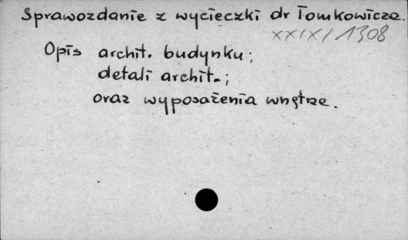 Sprawozdanie z wycieczki dr Tomkowicza.
XXIX/1308
Opis archit. budynku;
detali archit.;
oraz wyposażenia wnętrz.